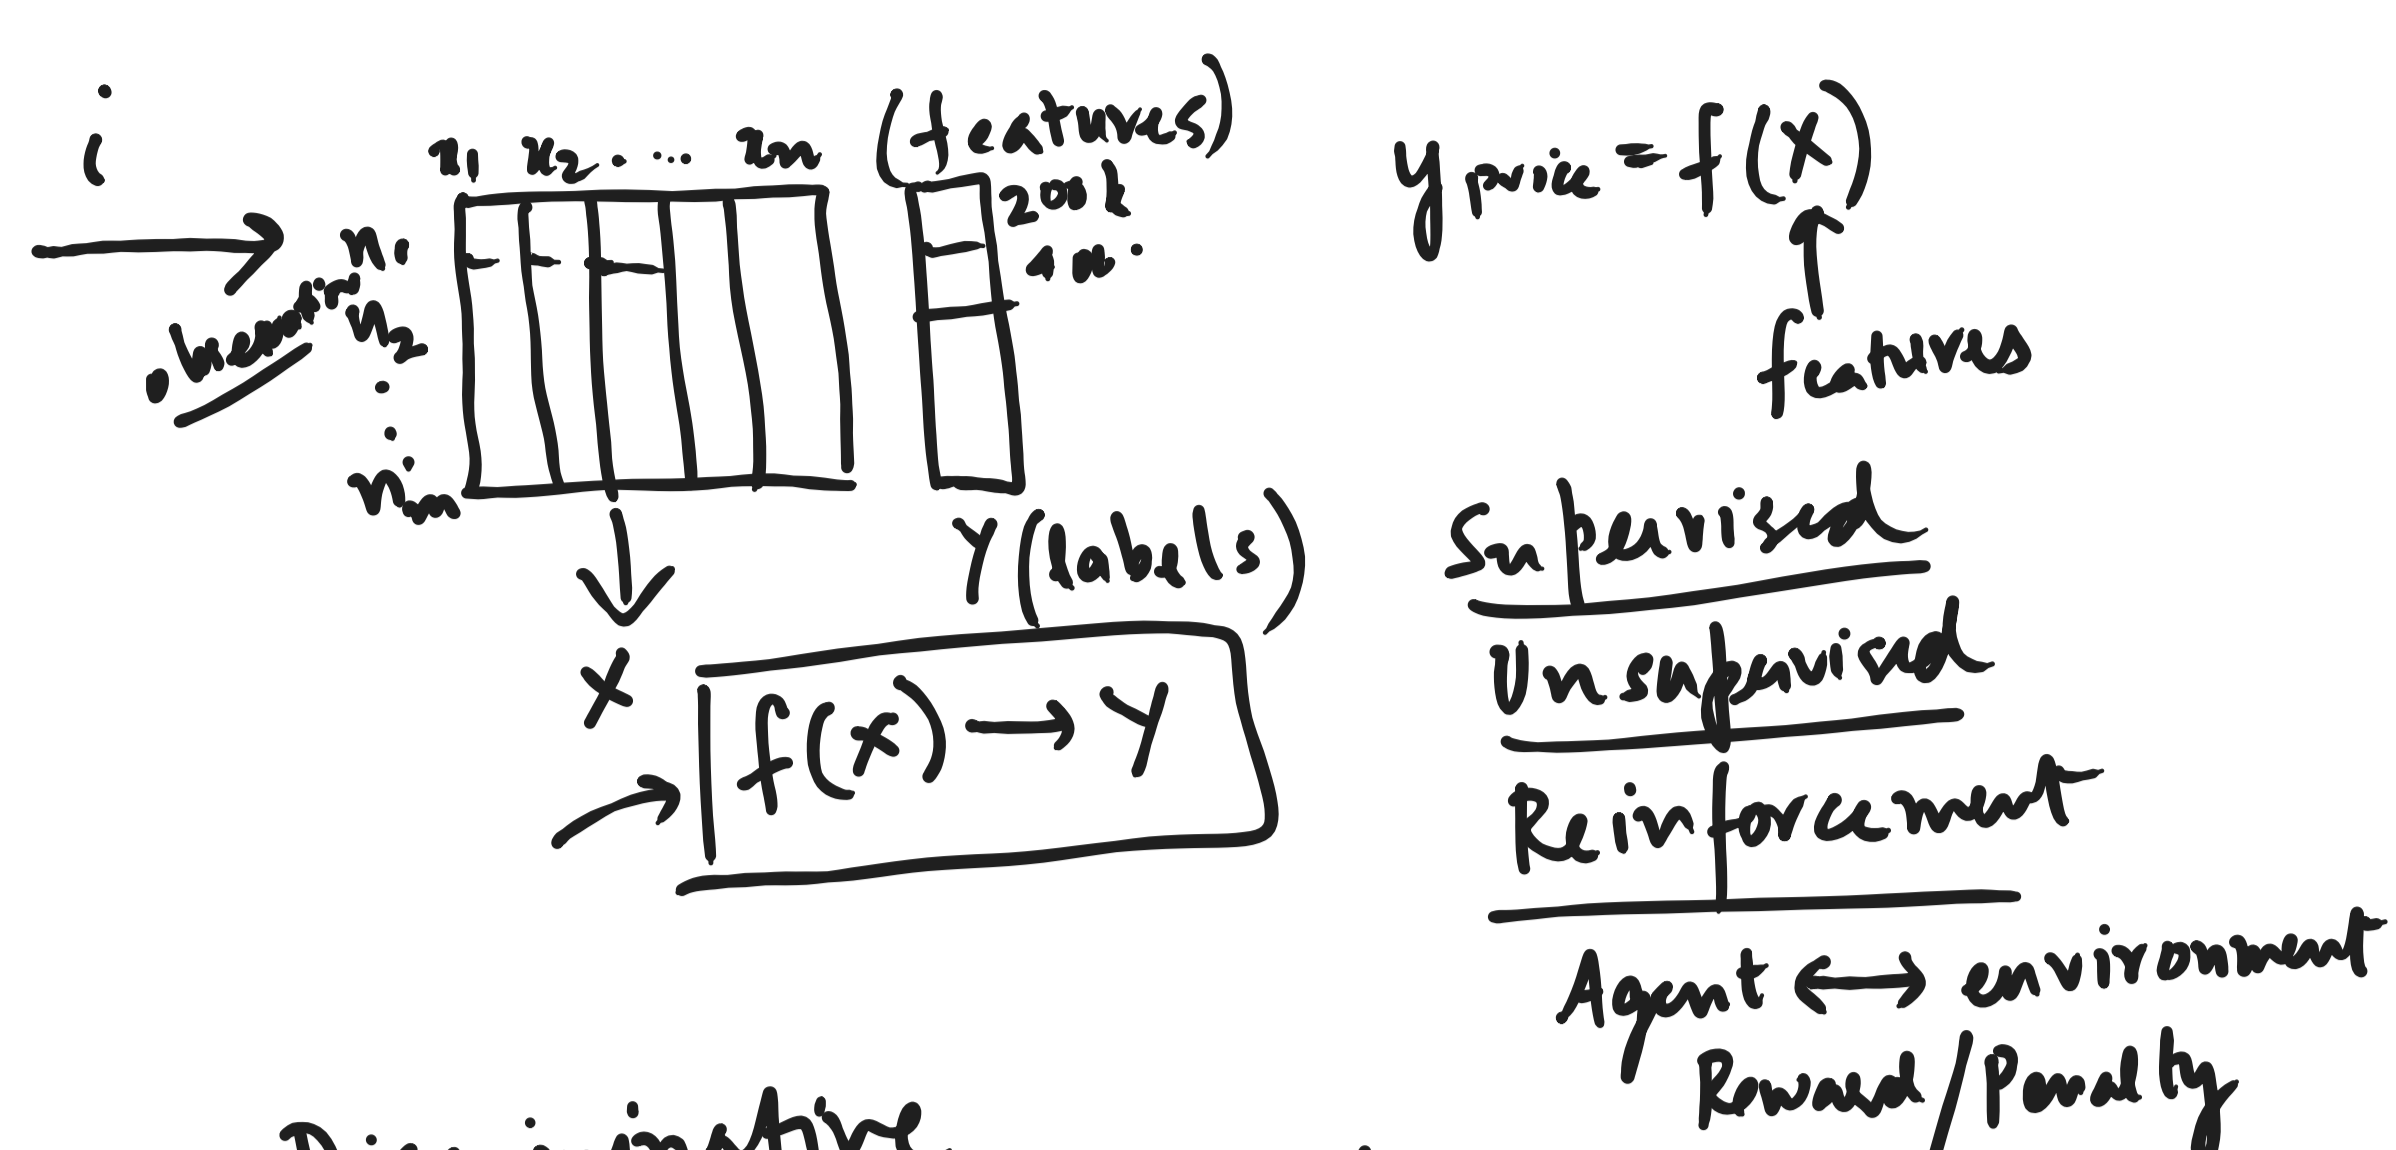 i
x1 x2 . ... xn (features)
n1
observation
n2
nm
200k
400k
Y (labels)
X
f(x) → Y
y price = f(x)
features
Supervised
Unsupervised
Reinforcement
Agent ↔ environment
Reward/Penalty